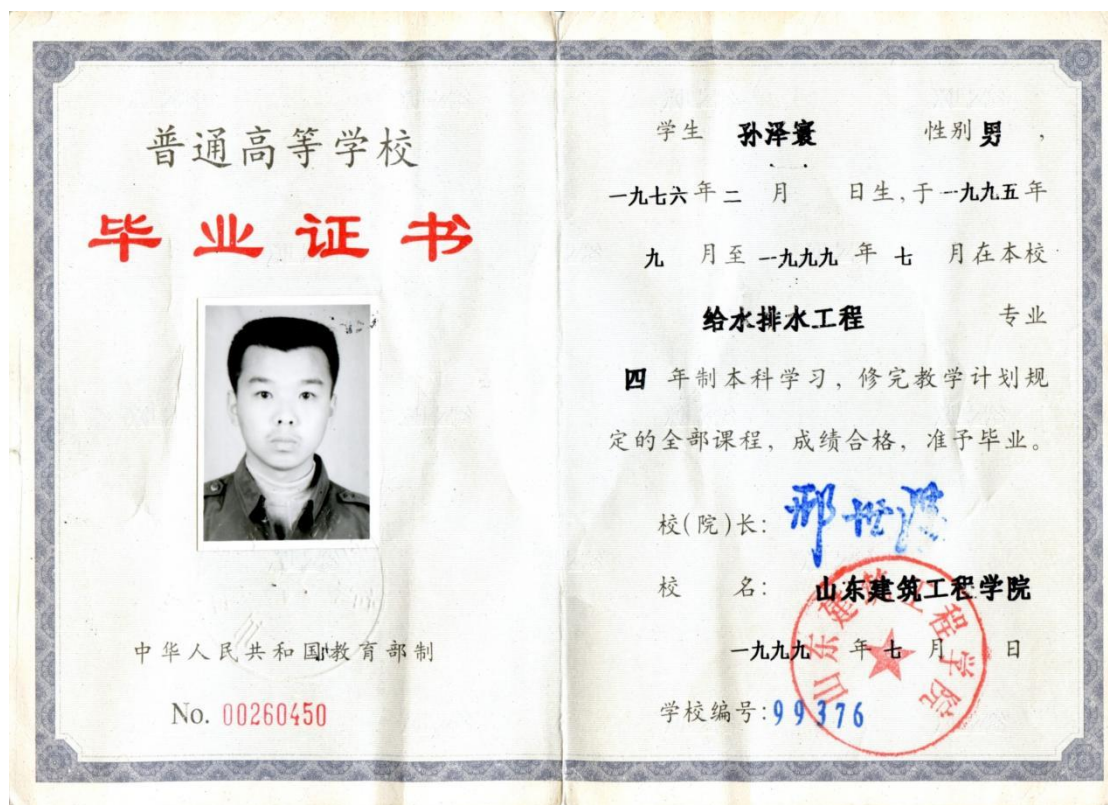 普通高等学校
毕业证书
中华人民共和国教育部制
No. 00260450
学生 孙泽寰 性别 男,
一九七六年二 月 日生,于一九九五年
九 月至 一九九九 年 七 月在本校
给水排水工程 专业
四 年制本科学习,修完教学计划规
定的全部课程,成绩合格,准予毕业。
校(院)长:
校 名: 山东建筑工程学院
一九九九 年 七 月 日
学校编号:99376
山东建筑工程学院